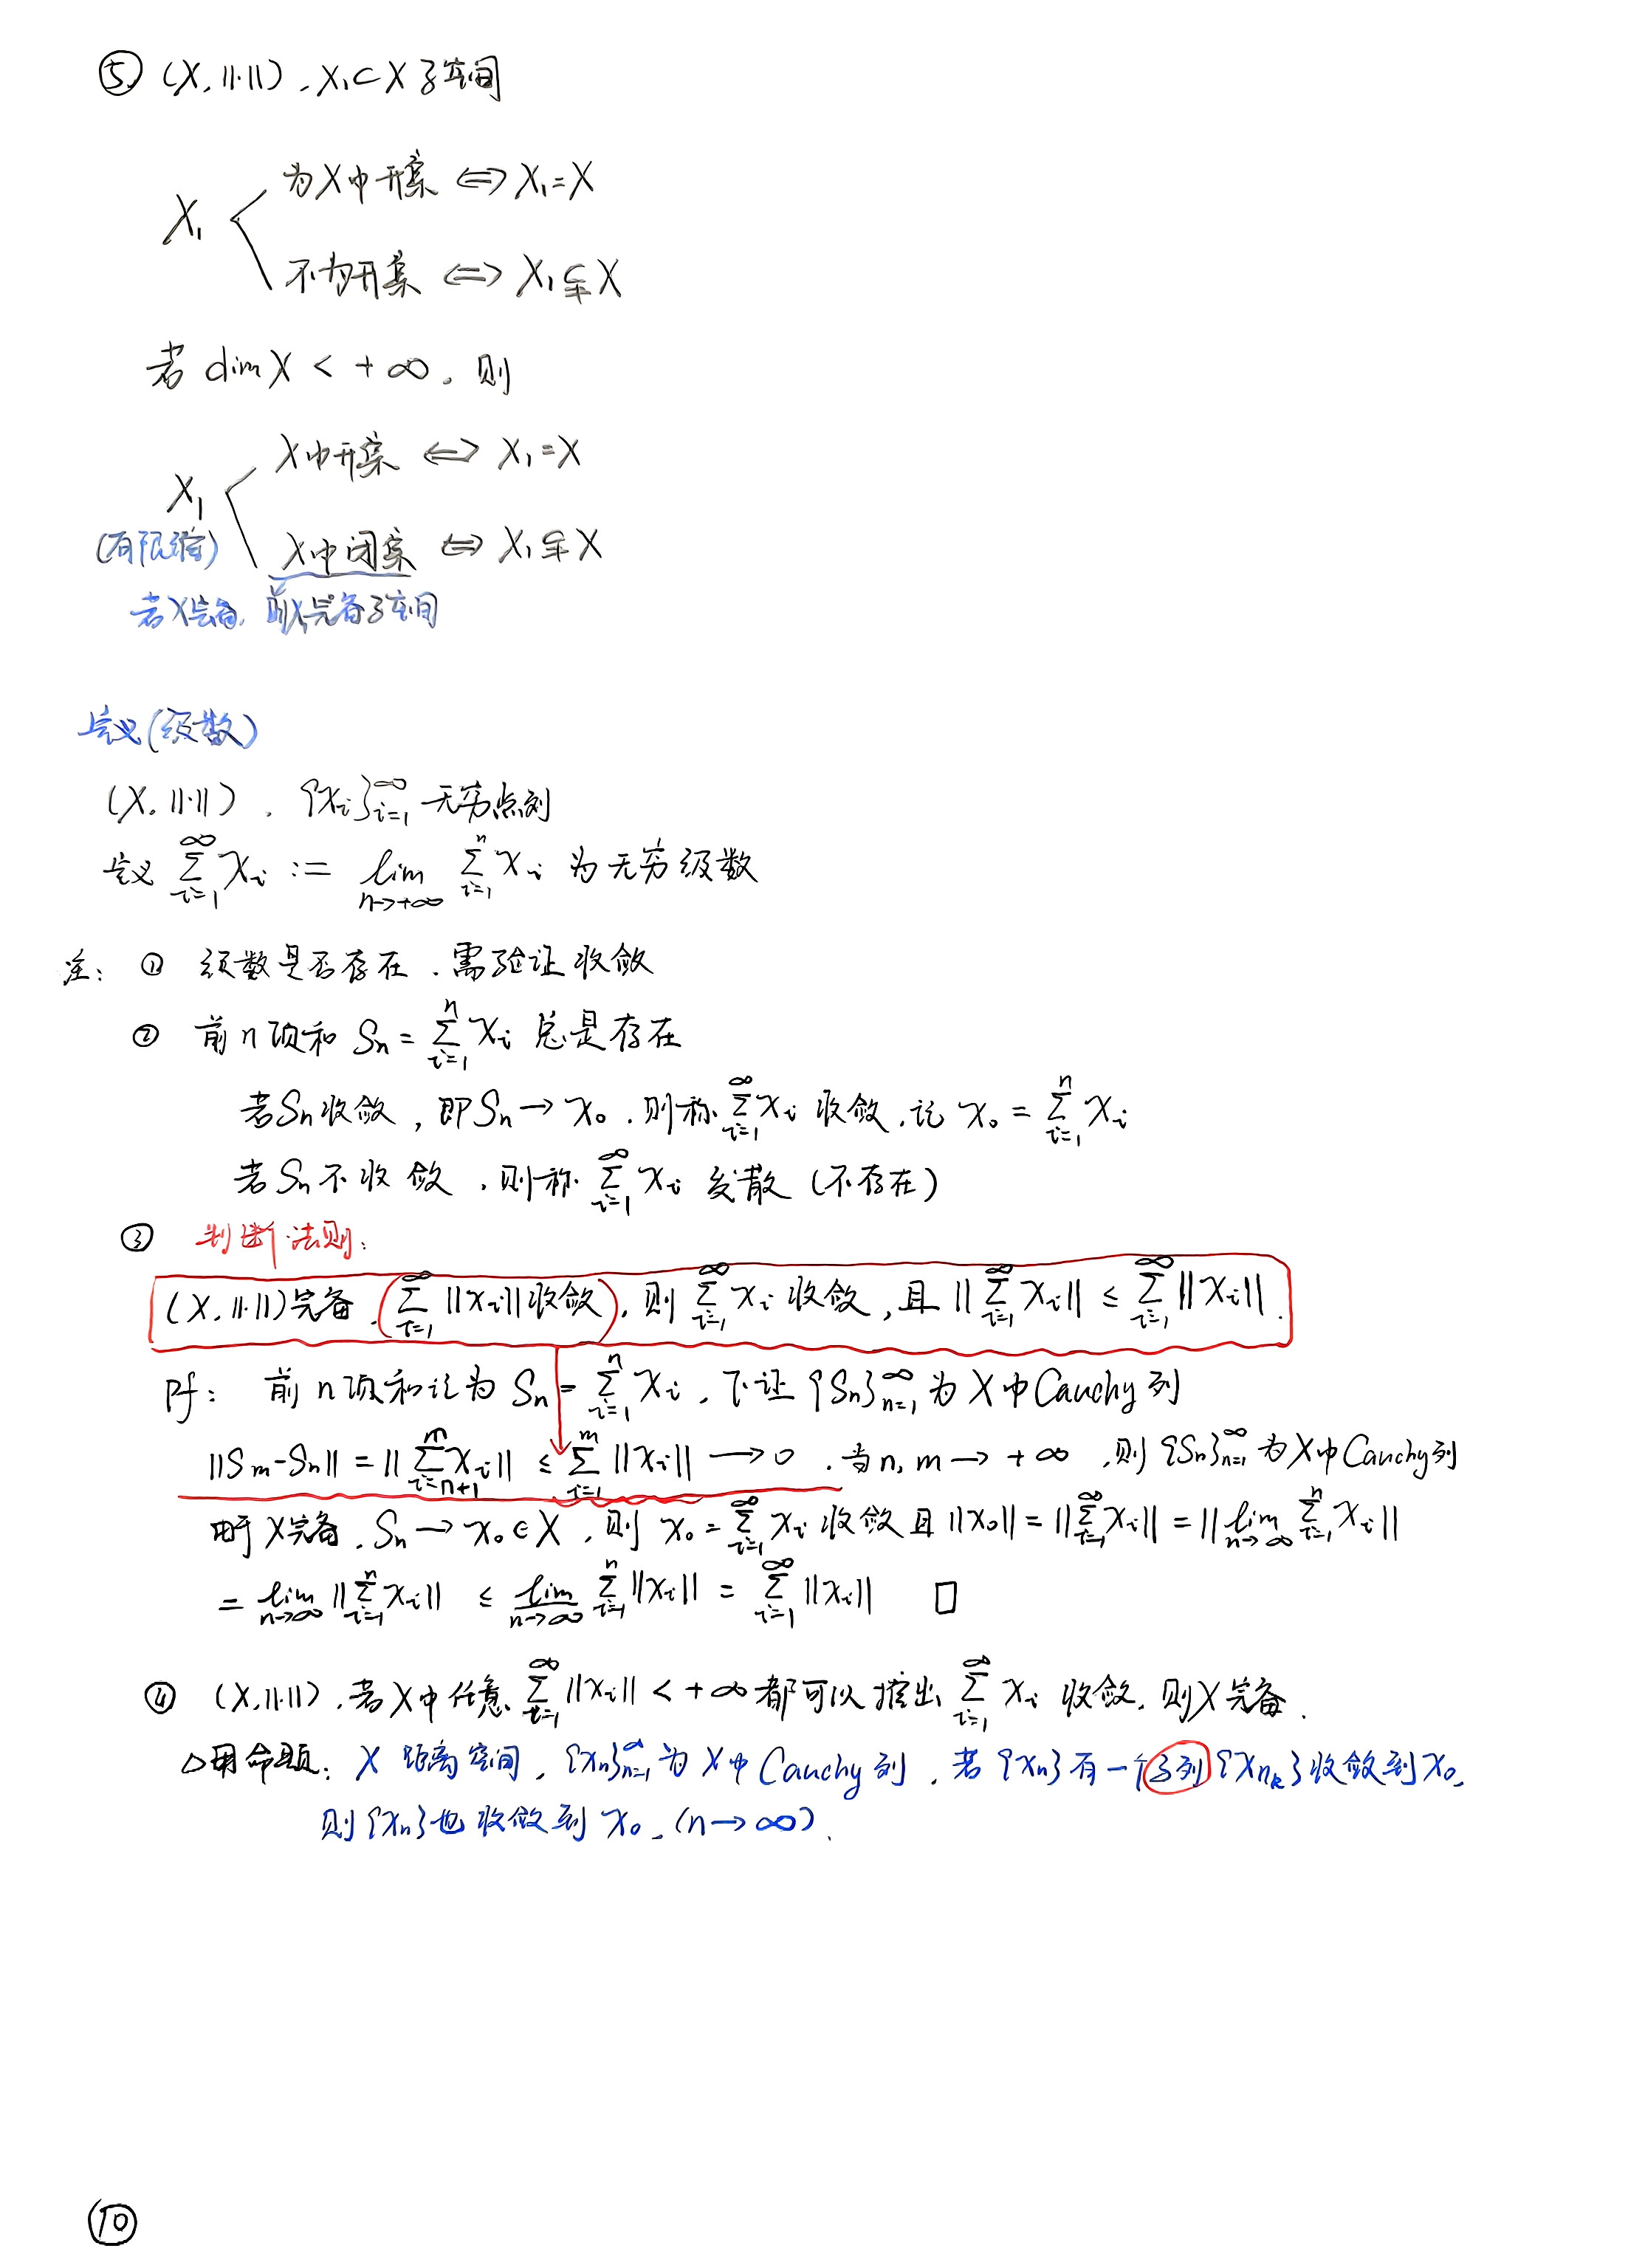 ⑤ (X, ||·||), X₁⊂X 子空间
为X中开集 ⟺ X₁=X
X₁
不为开集 ⟺ X₁⫋X
若 dim X < +∞, 则
X中开集 ⟺ X₁=X
X₁
(有限维) X中闭集 ⟺ X₁⫋X
若X完备, 则X₁完备子空间
定义(级数)
(X, ||·||), {xᵢ}_{i=1}^∞ 无穷点列
定义 ∑_{i=1}^∞ xᵢ := lim_{n→+∞} ∑_{i=1}^n xᵢ 为无穷级数
注: ① 级数是否存在, 需验证收敛
② 前n项和 Sₙ = ∑_{i=1}^n xᵢ 总是存在
若Sₙ收敛, 即Sₙ → x₀, 则称 ∑_{i=1}^∞ xᵢ 收敛, 记 x₀ = ∑_{i=1}^n xᵢ
若Sₙ不收敛, 则称 ∑_{i=1}^∞ xᵢ 发散 (不存在)
③ 判断法则:
(X, ||·||)完备, ∑_{i=1}^∞ ||xᵢ||收敛, 则 ∑_{i=1}^∞ xᵢ 收敛, 且 ||∑_{i=1}^∞ xᵢ|| ≤ ∑_{i=1}^∞ ||xᵢ||.
pf: 前n项和记为 Sₙ = ∑_{i=1}^n xᵢ, 下证 {Sₙ}_{n=1}^∞ 为X中Cauchy列
||Sₘ-Sₙ|| = ||∑_{i=n+1}^m xᵢ|| ≤ ∑_{i=1}^m ||xᵢ|| → 0, 当n, m → +∞, 则{Sₙ}_{n=1}^∞ 为X中Cauchy列
由于X完备, Sₙ → x₀∈X, 则 x₀ = ∑_{i=1}^∞ xᵢ 收敛且 ||x₀|| = ||∑_{i=1}^∞ xᵢ|| = ||lim_{n→∞} ∑_{i=1}^n xᵢ||
= lim_{n→∞} ||∑_{i=1}^n xᵢ|| ≤ lim_{n→∞} ∑_{i=1}^n ||xᵢ|| = ∑_{i=1}^∞ ||xᵢ|| □
④ (X, ||·||), 若X中任意 ∑_{i=1}^∞ ||xᵢ|| < +∞ 都可以推出 ∑_{i=1}^∞ xᵢ 收敛, 则X完备.
△用命题: X 距离空间, {xₙ}_{n=1}^∞ 为X中Cauchy列, 若{xₙ}有一个子列{x_{n_k}}收敛到x₀,
则{xₙ}也收敛到 x₀, (n→∞).
⑩